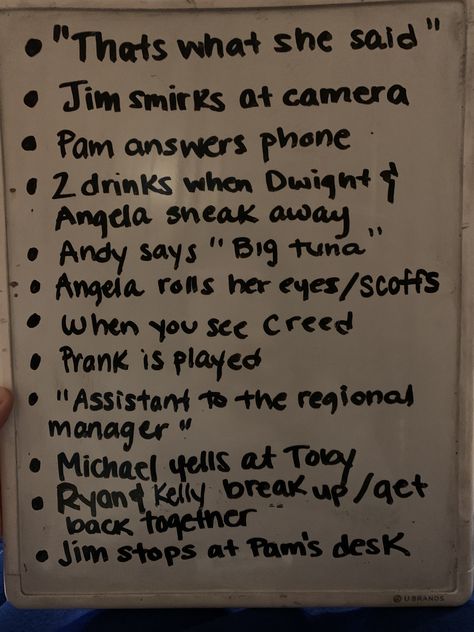 • "Thats what she said"
• Jim smirks at camera
• Pam answers phone
• 2 drinks when Dwight &
Angela sneak away
• Andy says "Big tuna"
• Angela rolls her eyes/scoffs
• When you see Creed
• Prank is played
• "Assistant to the regional
manager"
• Michael yells at Toby
• Ryan & Kelly break up/get
back together
• Jim stops at Pam's desk
U BRANDS